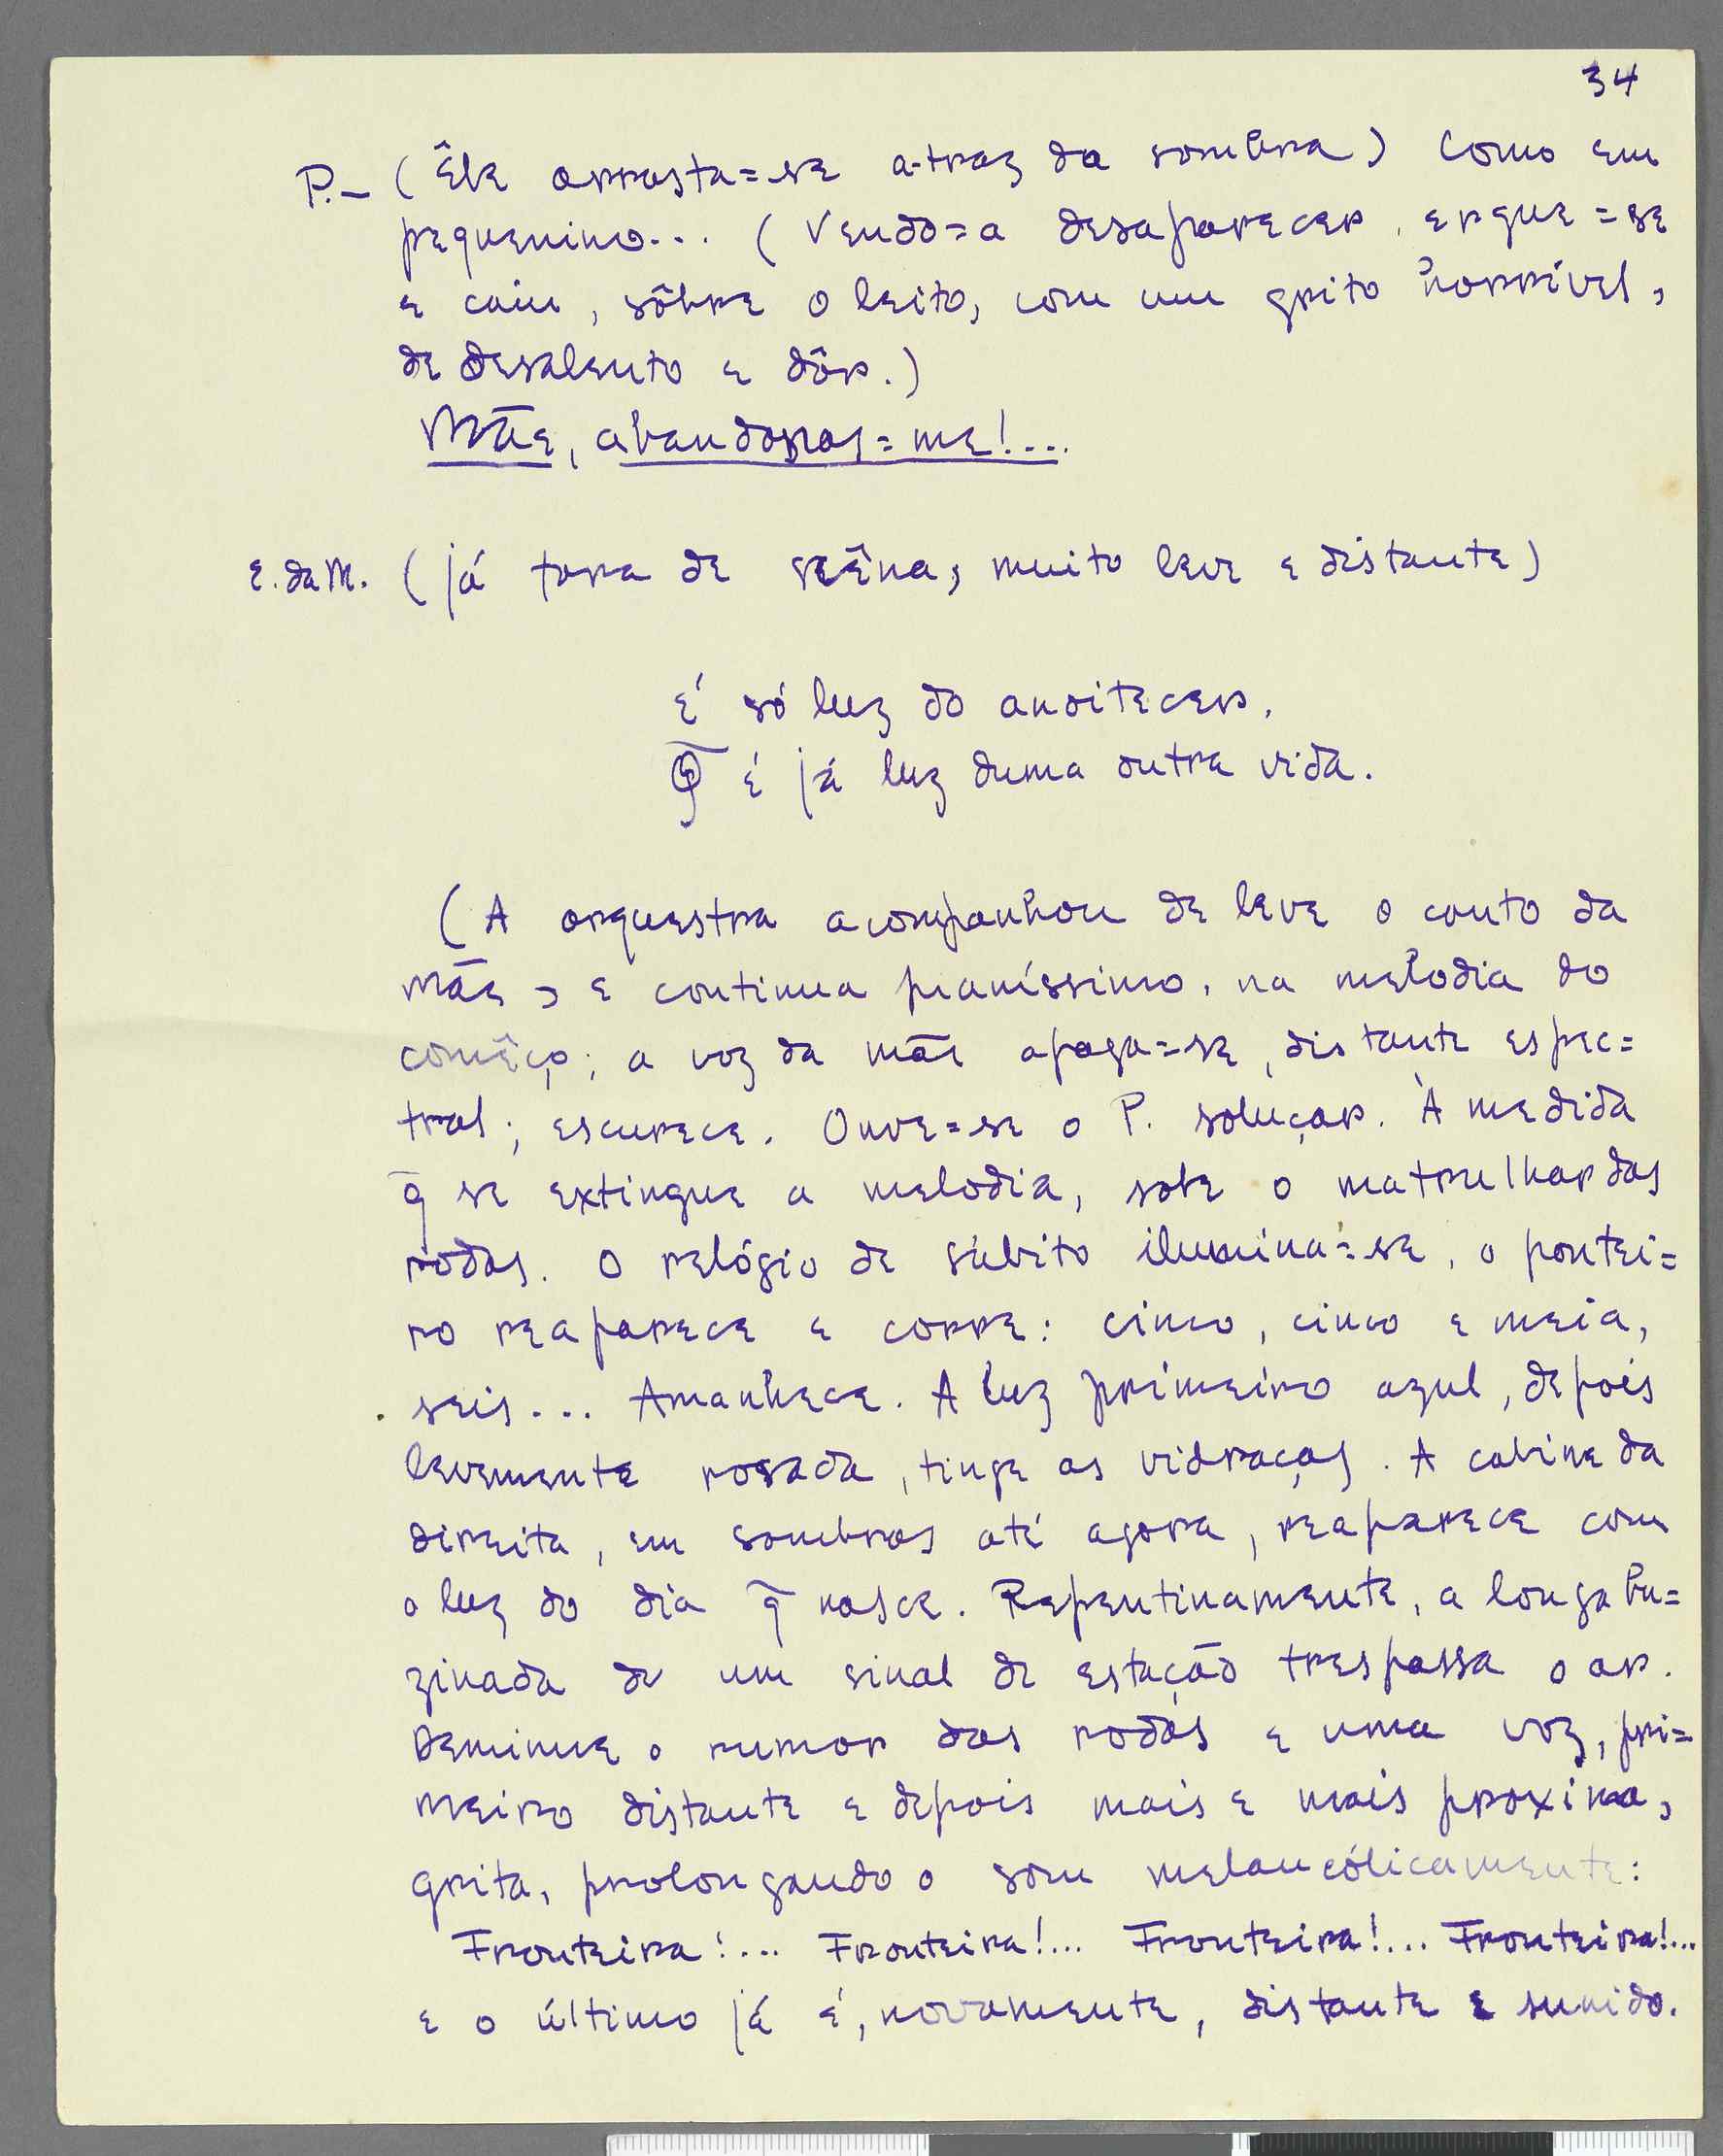 34
P.– (Êle arrasta=se a-traz da sombra) Como em
pequenino... (Vendo=a desaparecer, ergue=se
e caiu, sôbre o leito, com um grito horrível,
de desalento e dôr.)
Mãe, abandonas=me!...
E. da M. (já fora de scêna, muito leve e distante)
É só luz do anoitecer.
Q̃ é já luz duma outra vida.
(A orquestra acompanhou de leve o canto da
mãe, e continua pianíssimo, na melodia do
comêço; a voz da mãe apaga=se, distante espec=
tral; escurece. Ouve=se o P. soluçar. À medida
q̃ se extingue a melodia, sobe o matrulhar das
rodas. O relógio de súbito ilumina=se, o pontei=
ro reaparece e corre: cinco, cinco e meia,
seis... Amanhece. A luz primeiro azul, depois
levemente rosada, tinge as vidraças. A cabine da
direita, em sombras até agora, reaparece com
a luz do dia q̃ nasce. Repentinamente, a longa bu=
zinada de um sinal de estação trespassa o ar.
Deminue o rumor das rodas e uma voz, pri=
meiro distante e depois mais e mais proxima,
grita, prolongando o som melancólicamente:
Fronteira!... Fronteira!... Fronteira!... Fronteira!...
e o último já é, novamente, distante e sumido.